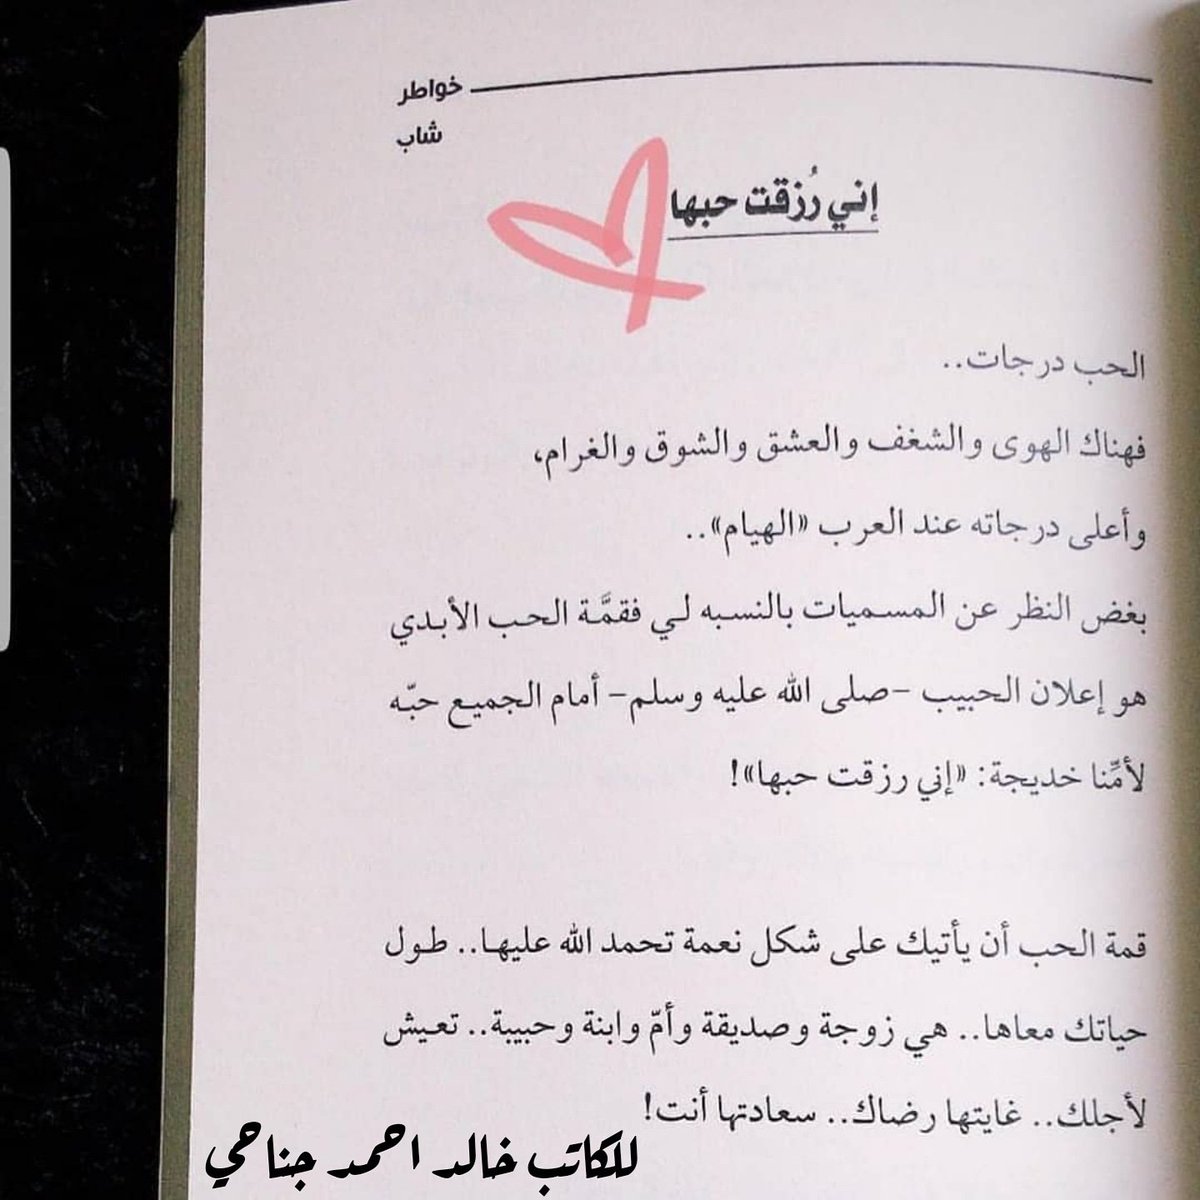 خواطر
شاب
إني رُزقت حبها
الحب درجات..
فهناك الهوى والشغف والعشق والشوق والغرام،
وأعلى درجاته عند العرب «الهيام»..
بغض النظر عن المسميات بالنسبه لي فقمَّة الحب الأبدي
هو إعلان الحبيب -صلى الله عليه وسلم- أمام الجميع حبّه
لأمِّنا خديجة: «إني رزقت حبها»!
قمة الحب أن يأتيك على شكل نعمة تحمد الله عليها.. طول
حياتك معاها.. هي زوجة وصديقة وأمّ وابنة وحبيبة.. تعيش
لأجلك.. غايتها رضاك.. سعادتها أنت!
للكاتب خالد احمد جناحي